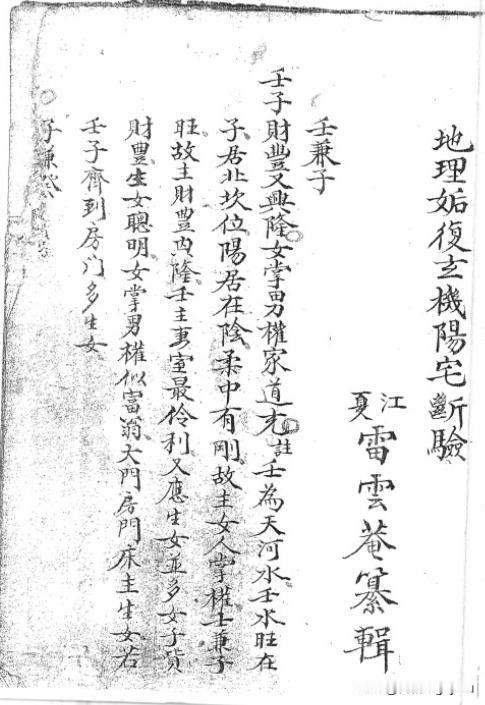 地理姤復玄機陽宅斷驗
江夏
雷雲菴纂輯
壬兼子
壬子財豐又興隆女掌男權家道充註壬為天河水壬水旺在
子居北坎位陽居在陰柔中有剛故主女人掌權壬兼子
旺故主財豐興隆壬主妻室最伶利又應生女並多女子貲
財豐生女聰明女掌男權似富翁大門房門床主生女若
壬子齊到房门多生女
子兼癸